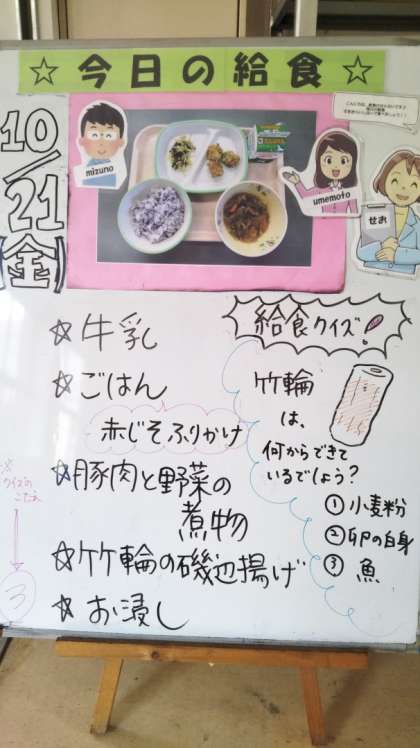 ☆今日の給食☆
10/21(金)
mizuno
umemoto
せお
☆牛乳
☆ごはん
赤じそふりかけ
☆豚肉と野菜の
煮物
☆竹輪の磯辺揚げ
☆お浸し
給食クイズ!
竹輪
は、
何からできて
いるでしょう?
①小麦粉
②卵の白身
③魚
※
クイズの
こたえ
③